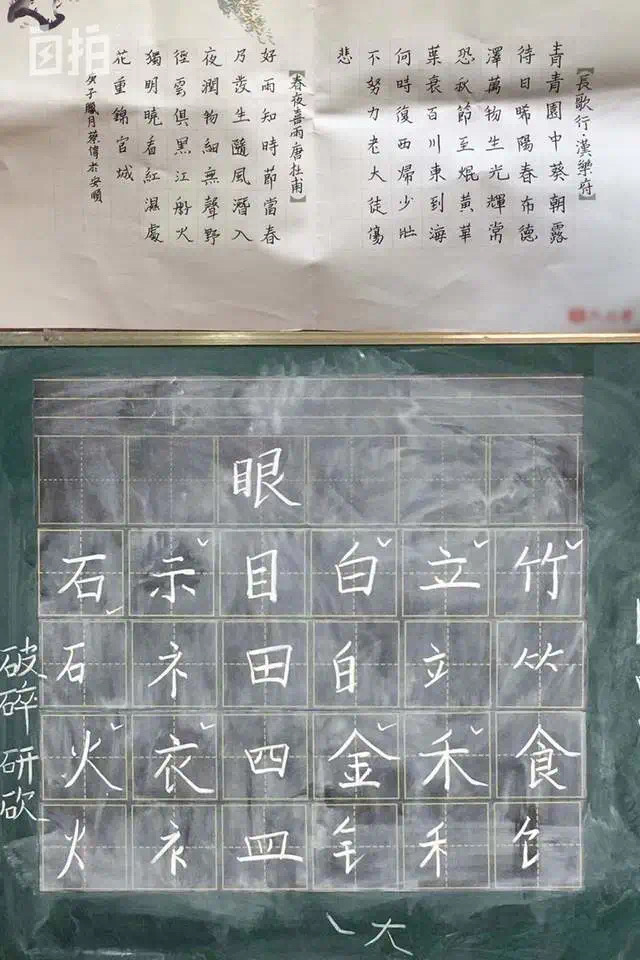 自拍
【長歌行·漢樂府】
青青園中葵朝露
待日晞陽春布德
澤萬物生光輝常
恐秋節至焜黃華
葉衰百川東到海
何時復西歸少壯
不努力老大徒傷
悲
【春夜喜雨·唐杜甫】
好雨知時節當春
乃發生隨風潛入
夜潤物細無聲野
徑雲俱黑江船火
獨明曉看紅濕處
花重錦官城
庚子臘月蔡偉於安順
眼
石 示 目 白 立 竹
石 礻 田 白 立 ⺮
火 衣 四 金 禾 食
火 衤 皿 钅 禾 饣
破
碎
研
砍
㇏ 大